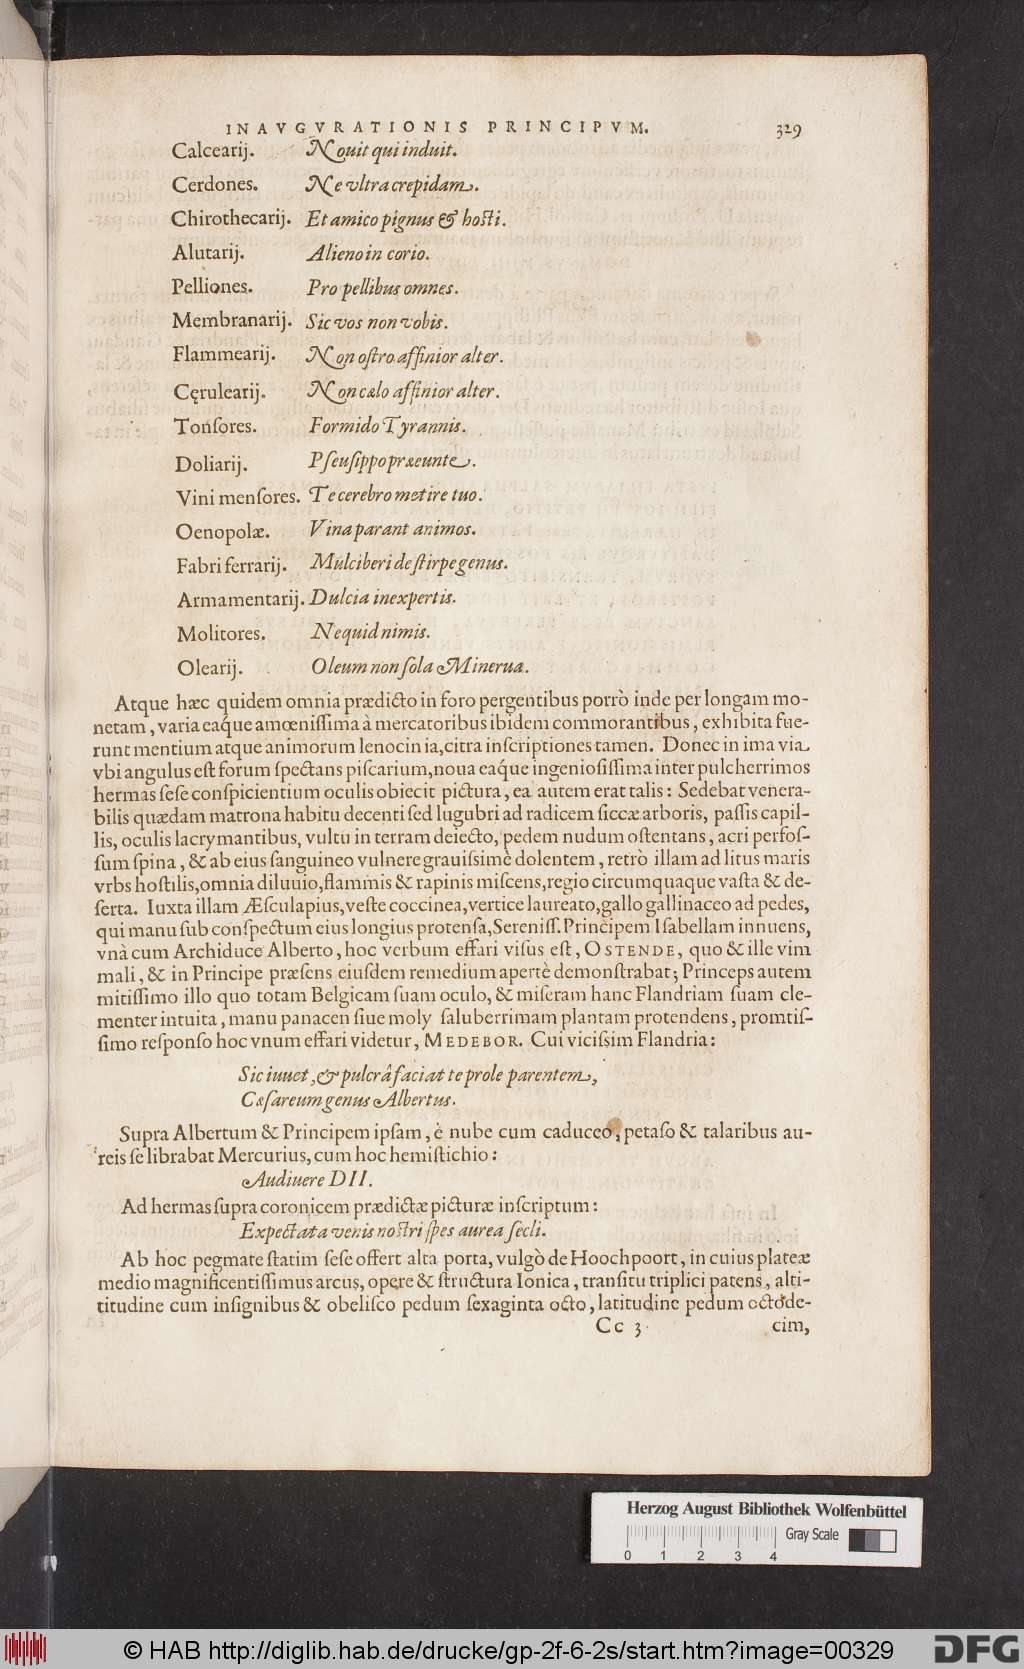 INAVGVRATIONIS PRINCIPVM. 329
Calcearij. Nouit qui induit.
Cerdones. Ne vltra crepidam.
Chirothecarij. Et amico pignus & hosti.
Alutarij. Alieno in corio.
Pelliones. Pro pellibus omnes.
Membranarij. Sic vos non vobis.
Flammearij. Non ostro affinior alter.
Cęrulearij. Non cælo affinior alter.
Tonsores. Formido Tyrannis.
Doliarij. Pseusippo præeunte.
Vini mensores. Te cerebro metire tuo.
Oenopolæ. Vina parant animos.
Fabri ferrarij. Mulciberi de stirpe genus.
Armamentarij. Dulcia inexpertis.
Molitores. Ne quid nimis.
Olearij. Oleum non sola Minerua.
Atque hæc quidem omnia prædicto in foro pergentibus porrò inde per longam mo-
netam, varia eáque amœnissima à mercatoribus ibidem commorantibus, exhibita fue-
runt mentium atque animorum lenocinia, citra inscriptiones tamen. Donec in ima via
vbi angulus est forum spectans piscarium, noua eáque ingeniosissima inter pulcherrimos
hermas sese conspicientium oculis obiecit pictura, ea autem erat talis: Sedebat venera-
bilis quædam matrona habitu decenti sed lugubri ad radicem siccæ arboris, passis capil-
lis, oculis lacrymantibus, vultu in terram deiecto, pedem nudum ostentans, acri perfos-
sum spina, & ab eius sanguineo vulnere grauissimè dolentem, retrò illam ad litus maris
vrbs hostilis, omnia diluuio, flammis & rapinis miscens, regio circumquaque vasta & de-
serta. Iuxta illam Æsculapius, veste coccinea, vertice laureato, gallo gallinaceo ad pedes,
qui manu sub conspectum eius longius protensa, Sereniss. Principem Isabellam innuens,
vnà cum Archiduce Alberto, hoc verbum effari visus est, OSTENDE, quo & ille vim
mali, & in Principe præsens eiusdem remedium apertè demonstrabat; Princeps autem
mitissimo illo quo totam Belgicam suam oculo, & miseram hanc Flandriam suam cle-
menter intuita, manu panacen siue moly saluberrimam plantam protendens, promtis-
simo responso hoc vnum effari videtur, MEDEBOR. Cui vicissim Flandria:
Sic iuuet, & pulcrâ faciat te prole parentem,
Cæsareum genus Albertus.
Supra Albertum & Principem ipsam, è nube cum caduceo, petaso & talaribus au-
reis se librabat Mercurius, cum hoc hemistichio:
Audiuere DII.
Ad hermas supra coronicem prædictæ picturæ inscriptum:
Expectata venis nostri spes aurea secli.
Ab hoc pegmate statim sese offert alta porta, vulgò de Hoochpoort, in cuius plateæ
medio magnificentissimus arcus, opere & structura Ionica, transitu triplici patens, alti-
titudine cum insignibus & obelisco pedum sexaginta octo, latitudine pedum octode-
Cc 3 cim,
Herzog August Bibliothek Wolfenbüttel
Gray Scale
0 1 2 3 4
© HAB http://diglib.hab.de/drucke/gp-2f-6-2s/start.htm?image=00329
DFG